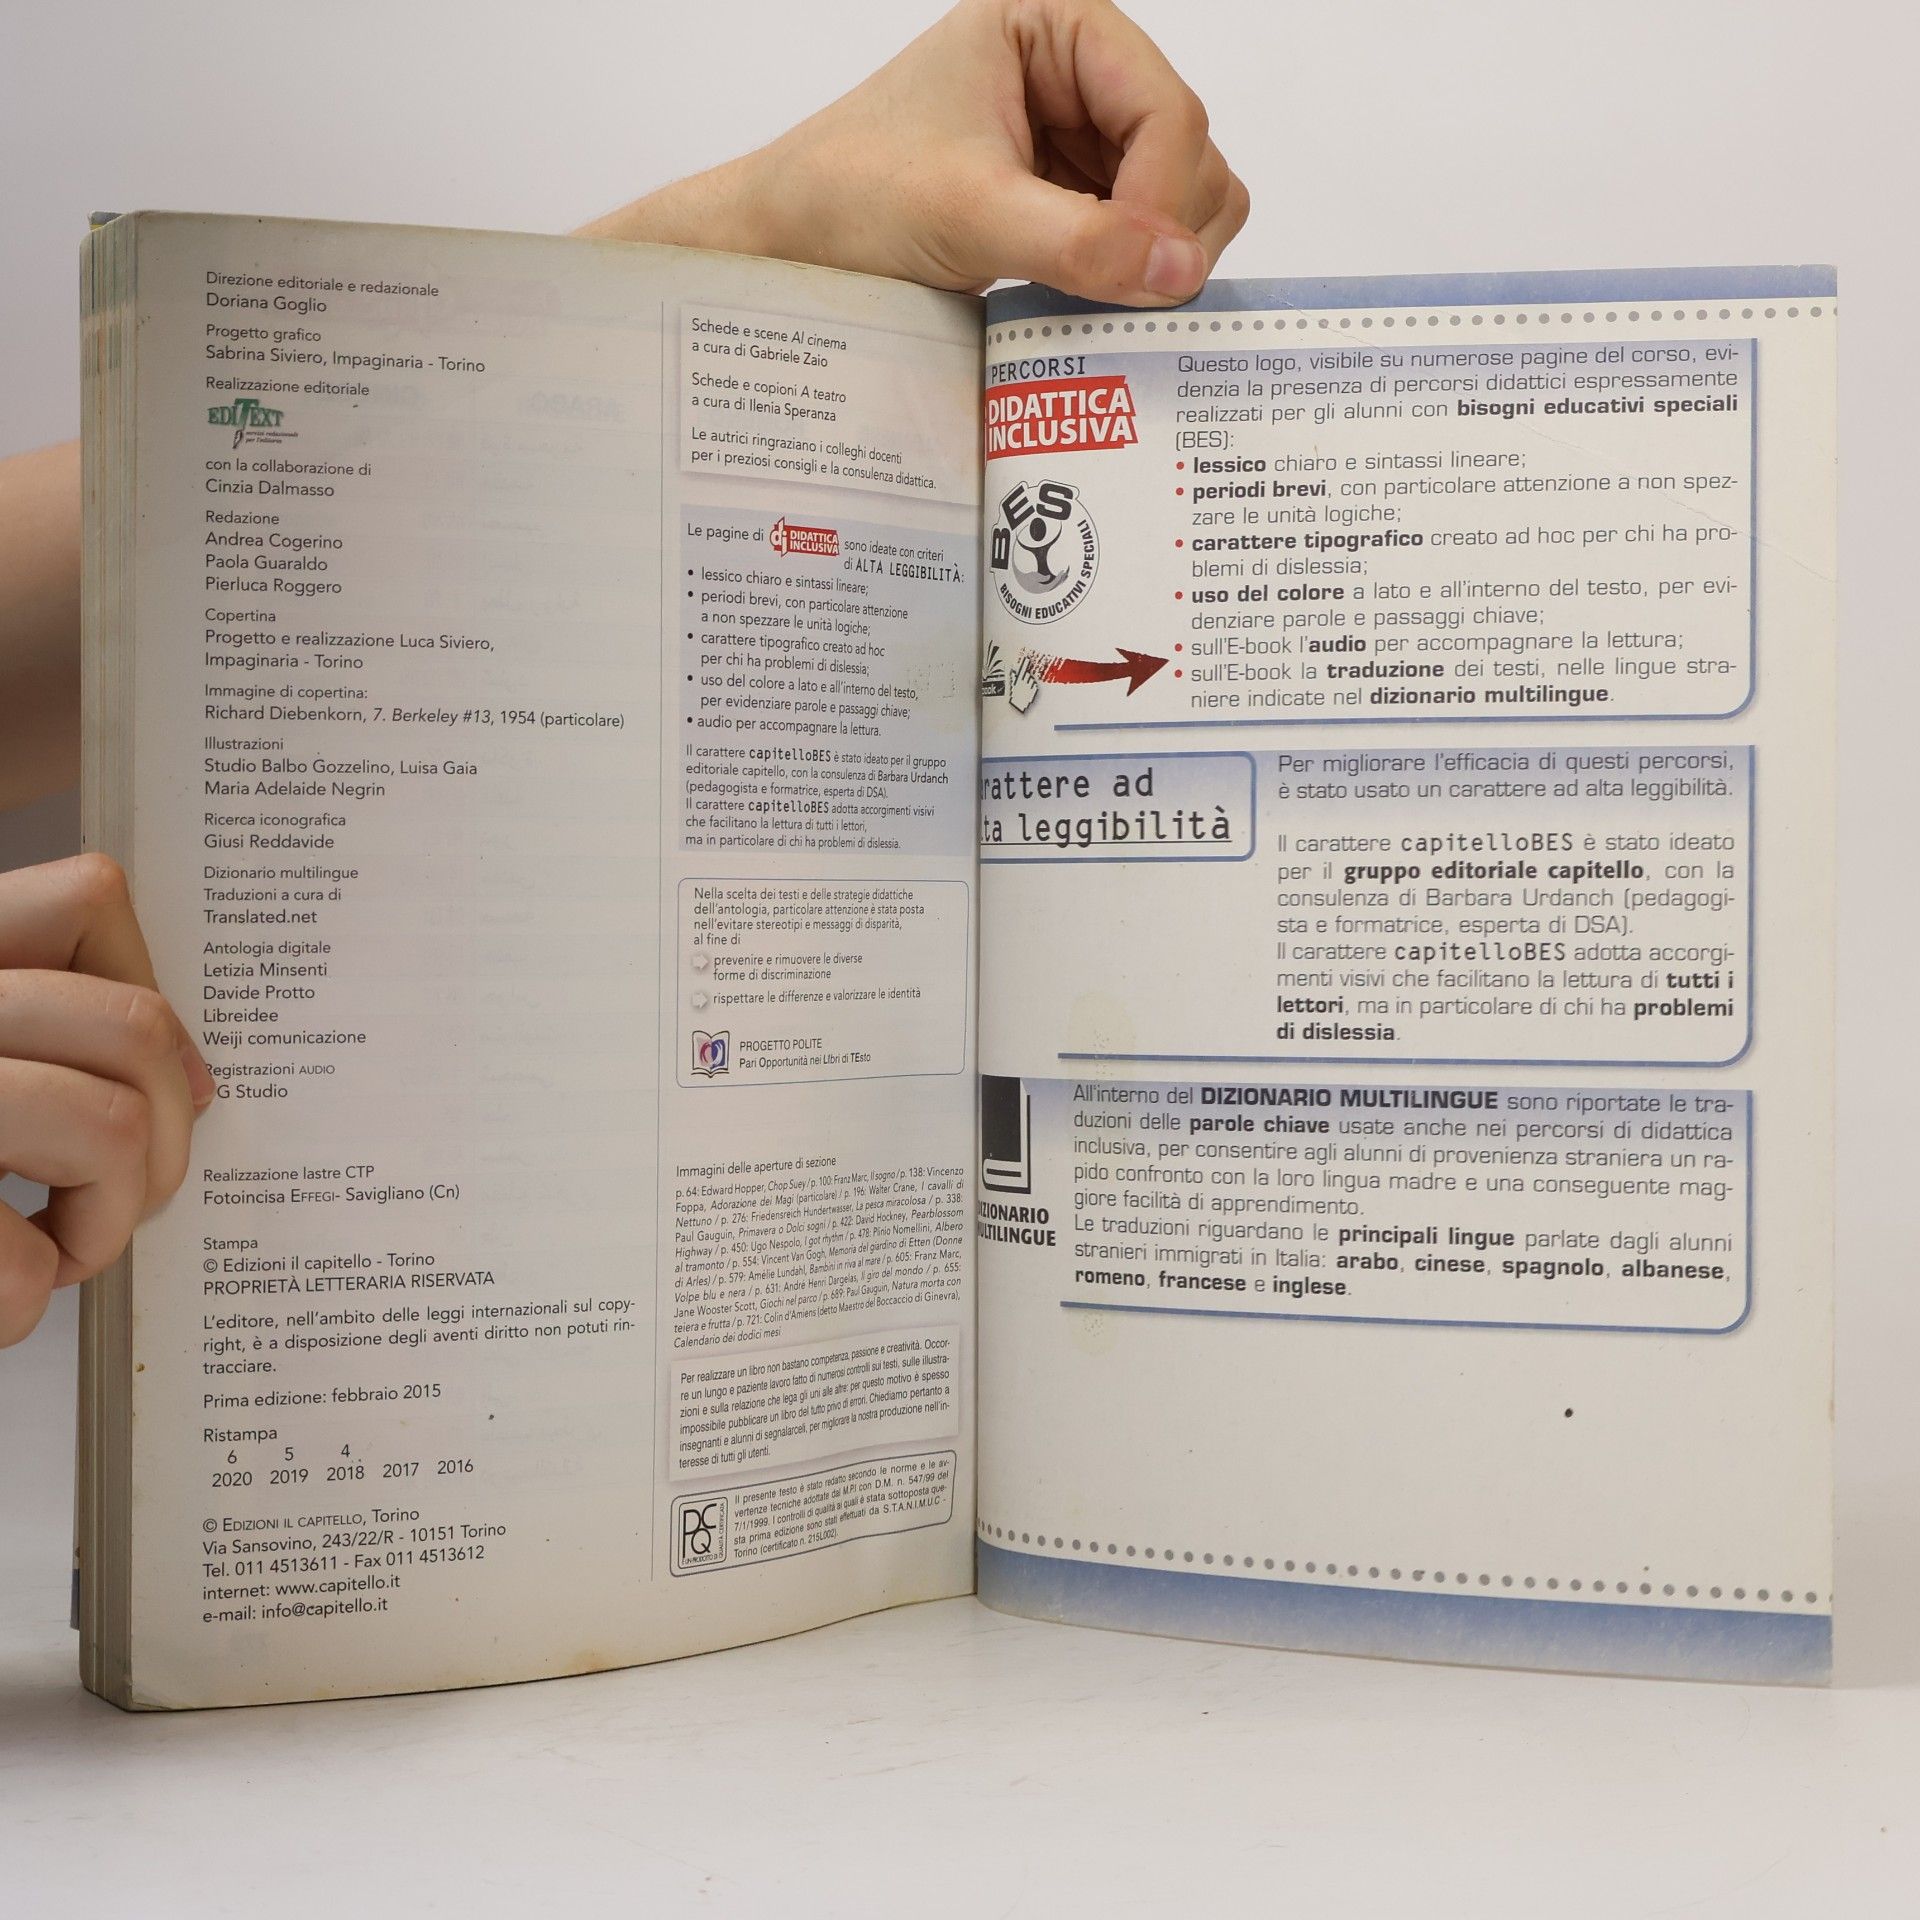 Direzione editoriale e redazionale
Doriana Goglio
Progetto grafico
Sabrina Siviero, Impaginaria - Torino
Realizzazione editoriale
EDITEXT
servizi redazionali
per l'editoria
con la collaborazione di
Cinzia Dalmasso
Redazione
Andrea Cogerino
Paola Guaraldo
Pierluca Roggero
Copertina
Progetto e realizzazione Luca Siviero,
Impaginaria - Torino
Immagine di copertina:
Richard Diebenkorn, 7. Berkeley #13, 1954 (particolare)
Illustrazioni
Studio Balbo Gozzelino, Luisa Gaia
Maria Adelaide Negrin
Ricerca iconografica
Giusi Reddavide
Dizionario multilingue
Traduzioni a cura di
Translated.net
Antologia digitale
Letizia Minsenti
Davide Protto
Libreidee
Weiji comunicazione
Registrazioni AUDIO
G Studio
Realizzazione lastre CTP
Fotoincisa EFFEGI- Savigliano (Cn)
Stampa
© Edizioni il capitello - Torino
PROPRIETÀ LETTERARIA RISERVATA
L'editore, nell'ambito delle leggi internazionali sul copy-
right, è a disposizione degli aventi diritto non potuti rin-
tracciare.
Prima edizione: febbraio 2015
Ristampa
6 5 4
2020 2019 2018 2017 2016
© EDIZIONI IL CAPITELLO, Torino
Via Sansovino, 243/22/R - 10151 Torino
Tel. 011 4513611 - Fax 011 4513612
internet: www.capitello.it
e-mail: info@capitello.it
Schede e scene Al cinema
a cura di Gabriele Zaio
Schede e copioni A teatro
a cura di Ilenia Speranza
Le autrici ringraziano i colleghi docenti
per i preziosi consigli e la consulenza didattica.
Le pagine di di DIDATTICA INCLUSIVA sono ideate con criteri
di ALTA LEGGIBILITÀ:
• lessico chiaro e sintassi lineare;
• periodi brevi, con particolare attenzione
a non spezzare le unità logiche;
• carattere tipografico creato ad hoc
per chi ha problemi di dislessia;
• uso del colore a lato e all'interno del testo,
per evidenziare parole e passaggi chiave;
• audio per accompagnare la lettura.
Il carattere capitelloBES è stato ideato per il gruppo
editoriale capitello, con la consulenza di Barbara Urdanch
(pedagogista e formatrice, esperta di DSA).
Il carattere capitelloBES adotta accorgimenti visivi
che facilitano la lettura di tutti i lettori,
ma in particolare di chi ha problemi di dislessia.
Nella scelta dei testi e delle strategie didattiche
dell'antologia, particolare attenzione è stata posta
nell'evitare stereotipi e messaggi di disparità,
al fine di
prevenire e rimuovere le diverse
forme di discriminazione
rispettare le differenze e valorizzare le identità
PROGETTO POLITE
Pari Opportunità nei LIbri di TEsto
Immagini delle aperture di sezione
p. 64: Edward Hopper, Chop Suey / p. 100: Franz Marc, Il sogno / p. 138: Vincenzo
Foppa, Adorazione dei Magi (particolare) / p. 196: Walter Crane, I cavalli di
Nettuno / p. 276: Friedensreich Hundertwasser, La pesca miracolosa / p. 338:
Paul Gauguin, Primavera o Dolci sogni / p. 422: David Hockney, Pearblossom
Highway / p. 450: Ugo Nespolo, I got rhythm / p. 478: Plinio Nomellini, Albero
al tramonto / p. 554: Vincent Van Gogh, Memoria del giardino di Etten (Donne
di Arles) / p. 579: Amélie Lundahl, Bambini in riva al mare / p. 605: Franz Marc,
Volpe blu e nera / p. 631: André Henri Dargelas, Il giro del mondo / p. 655:
Jane Wooster Scott, Giochi nel parco / p. 689: Paul Gauguin, Natura morta con
teiera e frutta / p. 721: Colin d'Amiens (detto Maestro del Boccaccio di Ginevra),
Calendario dei dodici mesi
Per realizzare un libro non bastano competenza, passione e creatività. Occor-
re un lungo e paziente lavoro fatto di numerosi controlli sui testi, sulle illustra-
zioni e sulla relazione che lega gli uni alle altre: per questo motivo è spesso
impossibile pubblicare un libro del tutto privo di errori. Chiediamo pertanto a
insegnanti e alunni di segnalarceli, per migliorare la nostra produzione nell'in-
teresse di tutti gli utenti.
PCQ
UN PRODOTTO DI
QUALITÀ CERTIFICATA
Il presente testo è stato redatto secondo le norme e le av-
vertenze tecniche adottate dal M.P.I con D.M. n. 547/99 del
7/1/1999. I controlli di qualità ai quali è stata sottoposta que-
sta prima edizione sono stati effettuati da S.T.A.N.I.M.U.C -
Torino (certificato n. 215L002).
PERCORSI
DIDATTICA
INCLUSIVA
BES
BISOGNI EDUCATIVI SPECIALI
book
Questo logo, visibile su numerose pagine del corso, evi-
denzia la presenza di percorsi didattici espressamente
realizzati per gli alunni con bisogni educativi speciali
(BES):
• lessico chiaro e sintassi lineare;
• periodi brevi, con particolare attenzione a non spez-
zare le unità logiche;
• carattere tipografico creato ad hoc per chi ha pro-
blemi di dislessia;
• uso del colore a lato e all'interno del testo, per evi-
denziare parole e passaggi chiave;
• sull'E-book l'audio per accompagnare la lettura;
• sull'E-book la traduzione dei testi, nelle lingue stra-
niere indicate nel dizionario multilingue.
rattere ad
ta leggibilità
Per migliorare l'efficacia di questi percorsi,
è stato usato un carattere ad alta leggibilità.
Il carattere capitelloBES è stato ideato
per il gruppo editoriale capitello, con la
consulenza di Barbara Urdanch (pedagogi-
sta e formatrice, esperta di DSA).
Il carattere capitelloBES adotta accorgi-
menti visivi che facilitano la lettura di tutti i
lettori, ma in particolare di chi ha problemi
di dislessia.
IZIONARIO
ULTILINGUE
All'interno del DIZIONARIO MULTILINGUE sono riportate le tra-
duzioni delle parole chiave usate anche nei percorsi di didattica
inclusiva, per consentire agli alunni di provenienza straniera un ra-
pido confronto con la loro lingua madre e una conseguente mag-
giore facilità di apprendimento.
Le traduzioni riguardano le principali lingue parlate dagli alunni
stranieri immigrati in Italia: arabo, cinese, spagnolo, albanese,
romeno, francese e inglese.